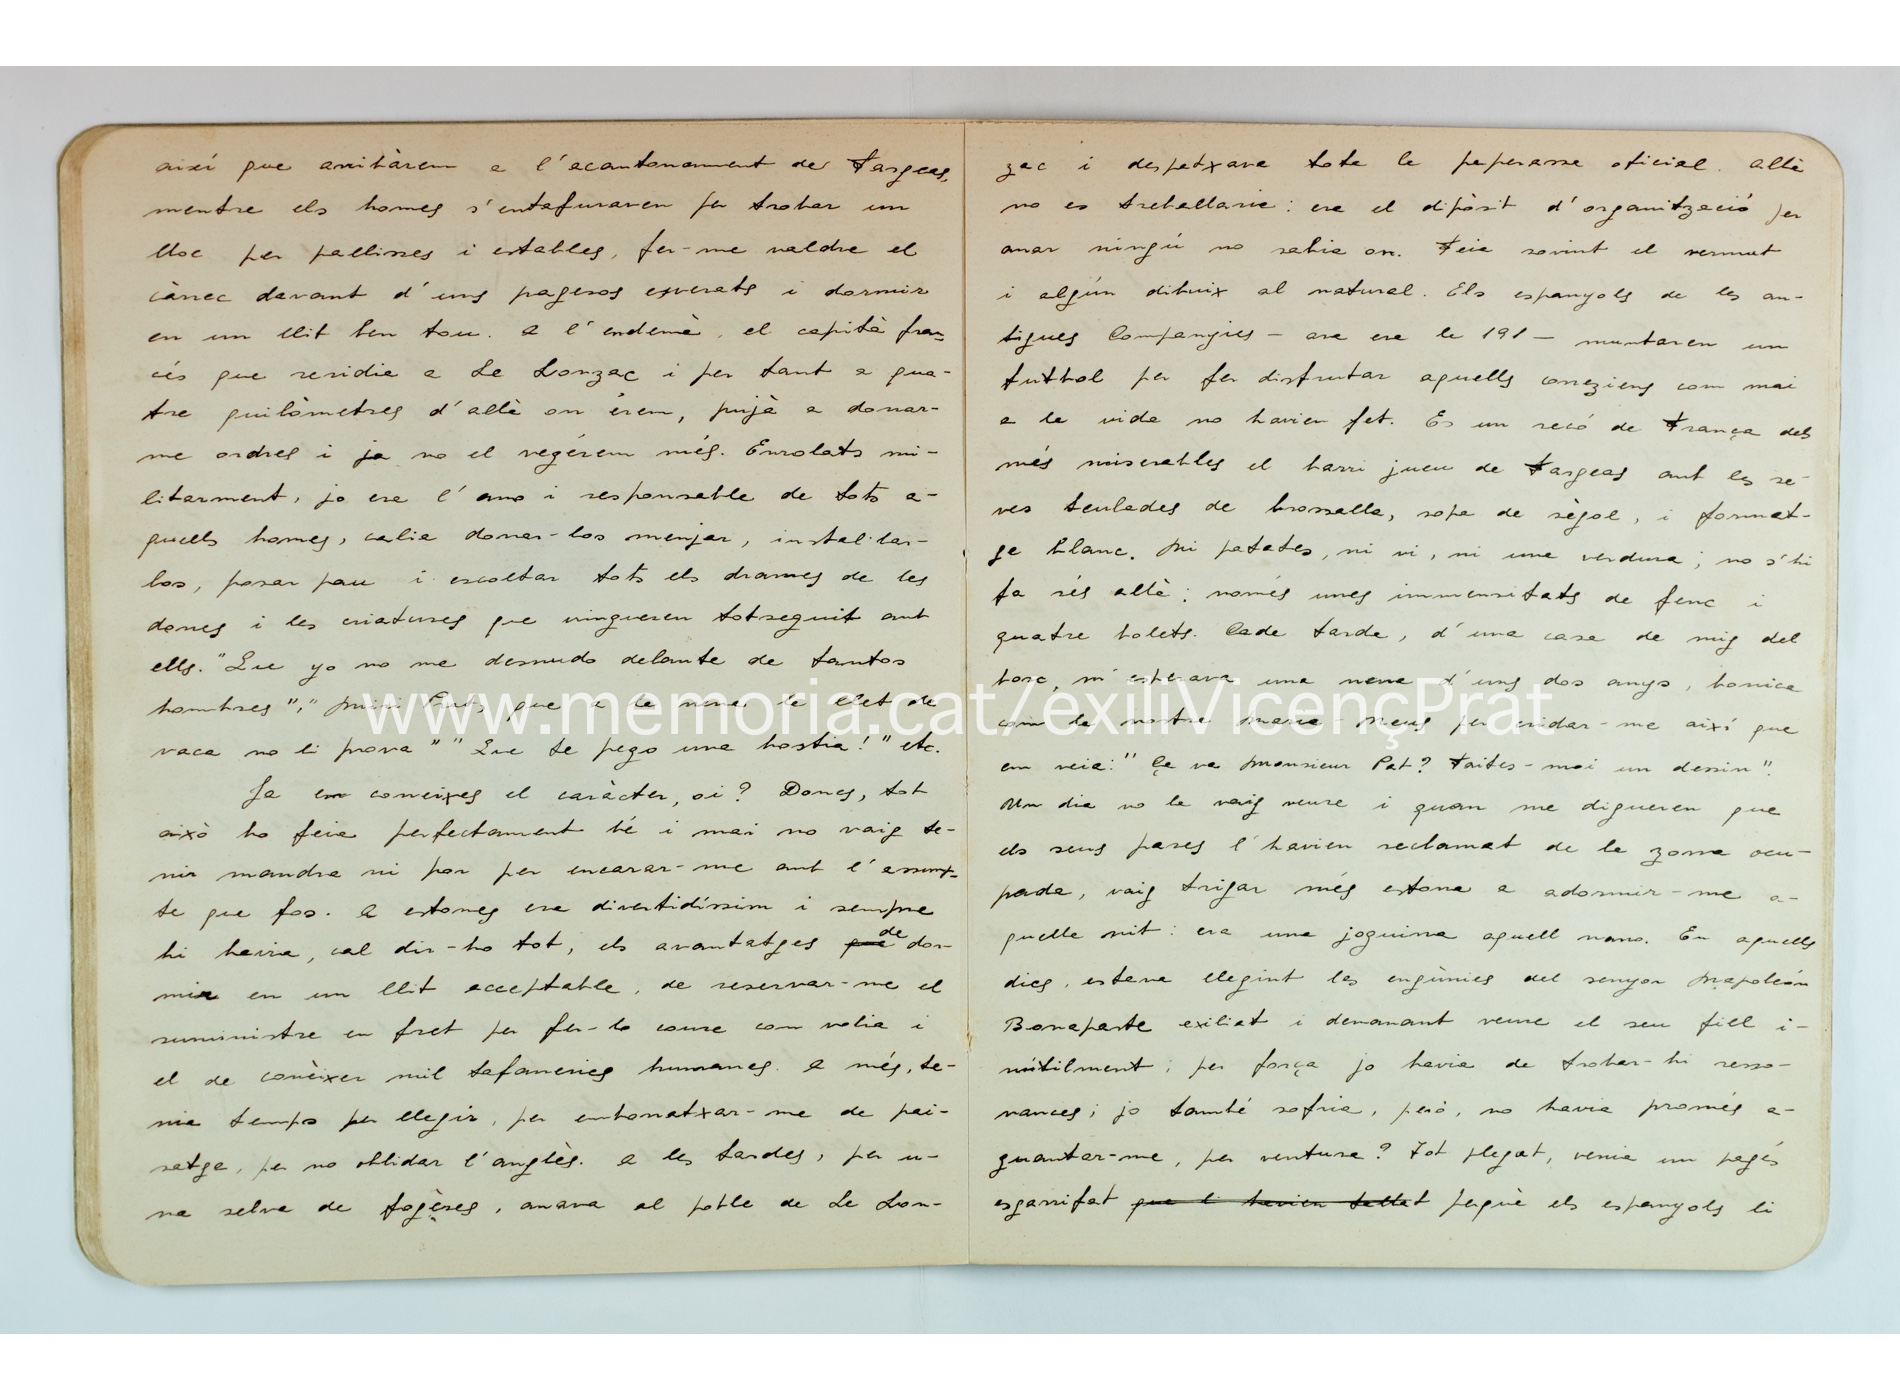 així que arribàrem a l'acantonament de Fargeas,
mentre els homes s'entafuraven per trobar un
lloc per pallisses i estables, fer-me valdre el
càrrec davant d'uns pagesos esverats i dormir
en un llit ben tou. A l'endemà, el capità fran-
cés que residia a Le Lonzac i per tant a qua-
tre quilòmetres d'allà on érem, pujà a donar-
me ordres i ja no el vegérem més. Enrolats mi-
litarment, jo era l'amo i responsable de tots a-
quells homes, calia donar-los menjar, instal·lar-
los, posar pau i escoltar tots els drames de les
dones i les criatures que vingueren totseguit amb
ells. "Que yo no me desnudo delante de tantos
hombres", " Prat, que a la nena la llet de
vaca no li prova" "Que te pego una hostia!" etc.
Ja em coneixes el caràcter, oi? Doncs, tot
això ho feia perfectament bé i mai no vaig te-
nir mandra ni por per encarar-me amb l'assump-
te que fos. A estones era divertidíssim i sempre
hi havia, cal dir-ho tot, els avantatges que de dor-
mir en un llit acceptable, de reservar-me el
suministre en fret per fer-lo coure com volia i
el de conèixer mil tafaneries humanes. A més, te-
nia temps per llegir, per embonatxar-me de pai-
satge, per no oblidar l'anglès. A les tardes, per u-
na selva de fogères, anava al poble de Le Lon-
zac i despatxava tota la paperassa oficial. Allà
no es treballava: era el dipòsit d'organització per
anar ningú no sabia on. Feia sovint el vermut
i algún dibuix al natural. Els espanyols de les an-
tigues Companyies - ara era la 191 - muntaren un
futbol per fer disfrutar aquells correziens com mai
a la vida no havien fet. És un recó de França dels
més miserables el barri jueu de Fargeas amb les se-
ves teulades de brossalla, sopa de sègol, i format-
ge blanc. Ni patates, ni vi, ni una verdura; no s'hi
fa rés allà: només unes immensitats de fenc i
quatre bolets. Cada tarda, d'una casa de mig del
bosc, m'esperava una nena d'uns dos anys, bonica
com la nostra Maria-Neus per cridar-me així que
em veia: "Ça va Monsieur Pat? Faites-moi un dessin".
Un dia no la vaig veure i quan me digueren que
els seus pares l'havien reclamat de la zona ocu-
pada, vaig trigar més estona a adormir-me a-
quella nit: era una joguina aquell nano. En aquells
dies, estava llegint les engúnies del senyor Napoleón
Bonaparte exiliat i demanant veure el seu fill i-
nútilment; per força jo havia de trobar-hi resso-
nances; jo també sofria, però, no havia promés a-
guantar-me, per ventura? Tot plegat, venia un pagés
esgarrifat que li havien tallat perquè els espanyols li
www.memoria.cat/exiliVicençPrat